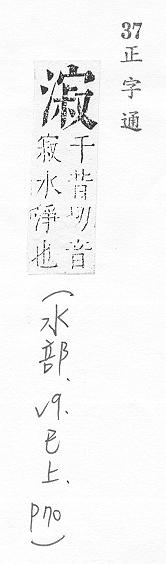 37
正字通
漃
千昔切音
寂水也
(水部.v9.巳上.p70)